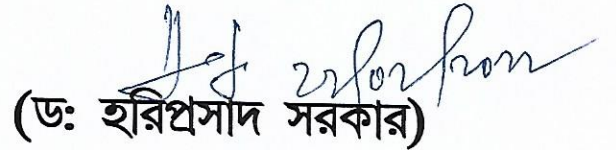 (ড: হরিপ্রসাদ সরকার)